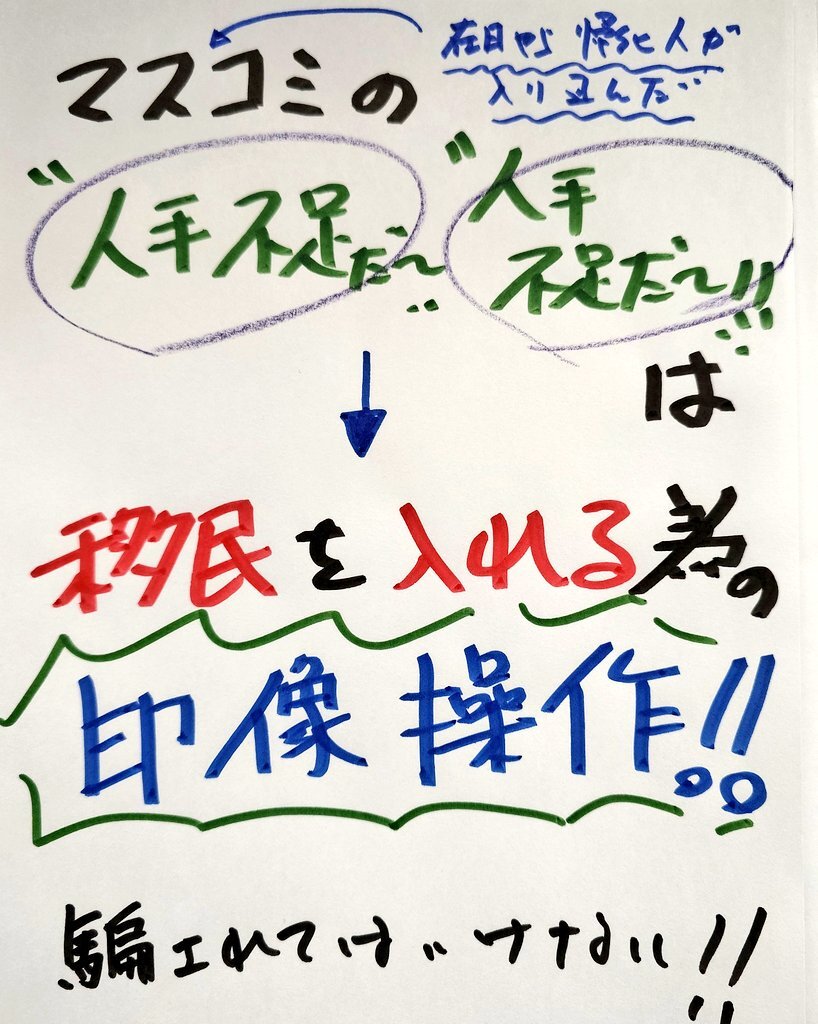 在日やら帰化人が
入り込んだ
マスコミの
"人手不足だ〜"
"人手
不足だ〜!!"
は
移民を入れる為の
印像操作!!
騙されてはいけない!!